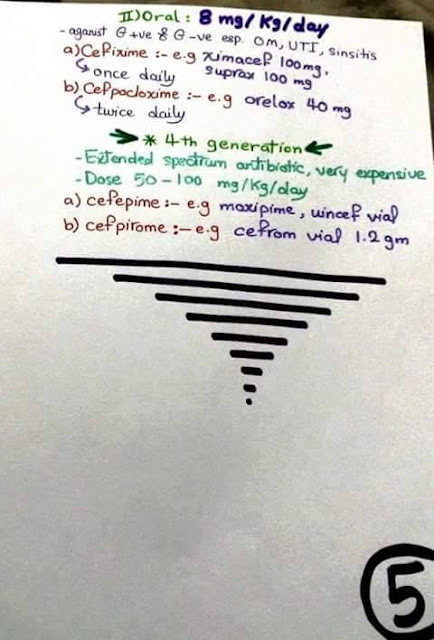 II) Oral : 8 mg/kg/day
- aganist G +ve & G -ve esp. OM, UTI, sinsitis
a) Cefixime :- e.g ximacef 100 mg.
↳ once daily suprax 100 mg
b) Cefpodoxime :- e.g orelox 40 mg
↳ twice daily
* 4th generation
- Extended spectrum antibiotic, very expensive
- Dose 50 - 100 mg/kg/day
a) cefepime :- e.g maxipime, wincef vial
b) cefpirome :- e.g cefrom vial 1.2 gm
5